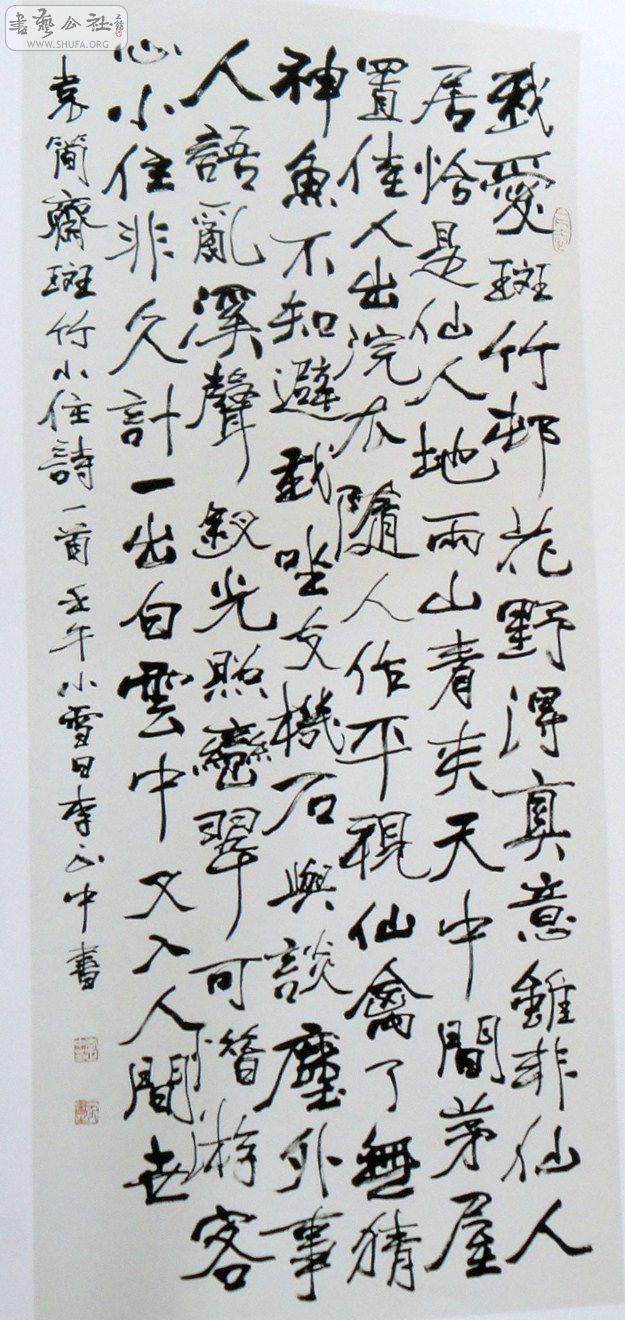 書藝公社
WWW.SHUFA.ORG
我愛斑竹邨花野得真意雖非仙人
居恰是仙人地兩山青夾天中間茅屋
置佳人出浣衣隨人作平視仙禽了無猜
神魚不知避我坐支機石與談塵外事
人語亂溪聲釵光照巒翠可惜游客
心小住非久計一出白雲中又入人間世
袁簡齋斑竹小住詩一首壬午小雪日李正中書